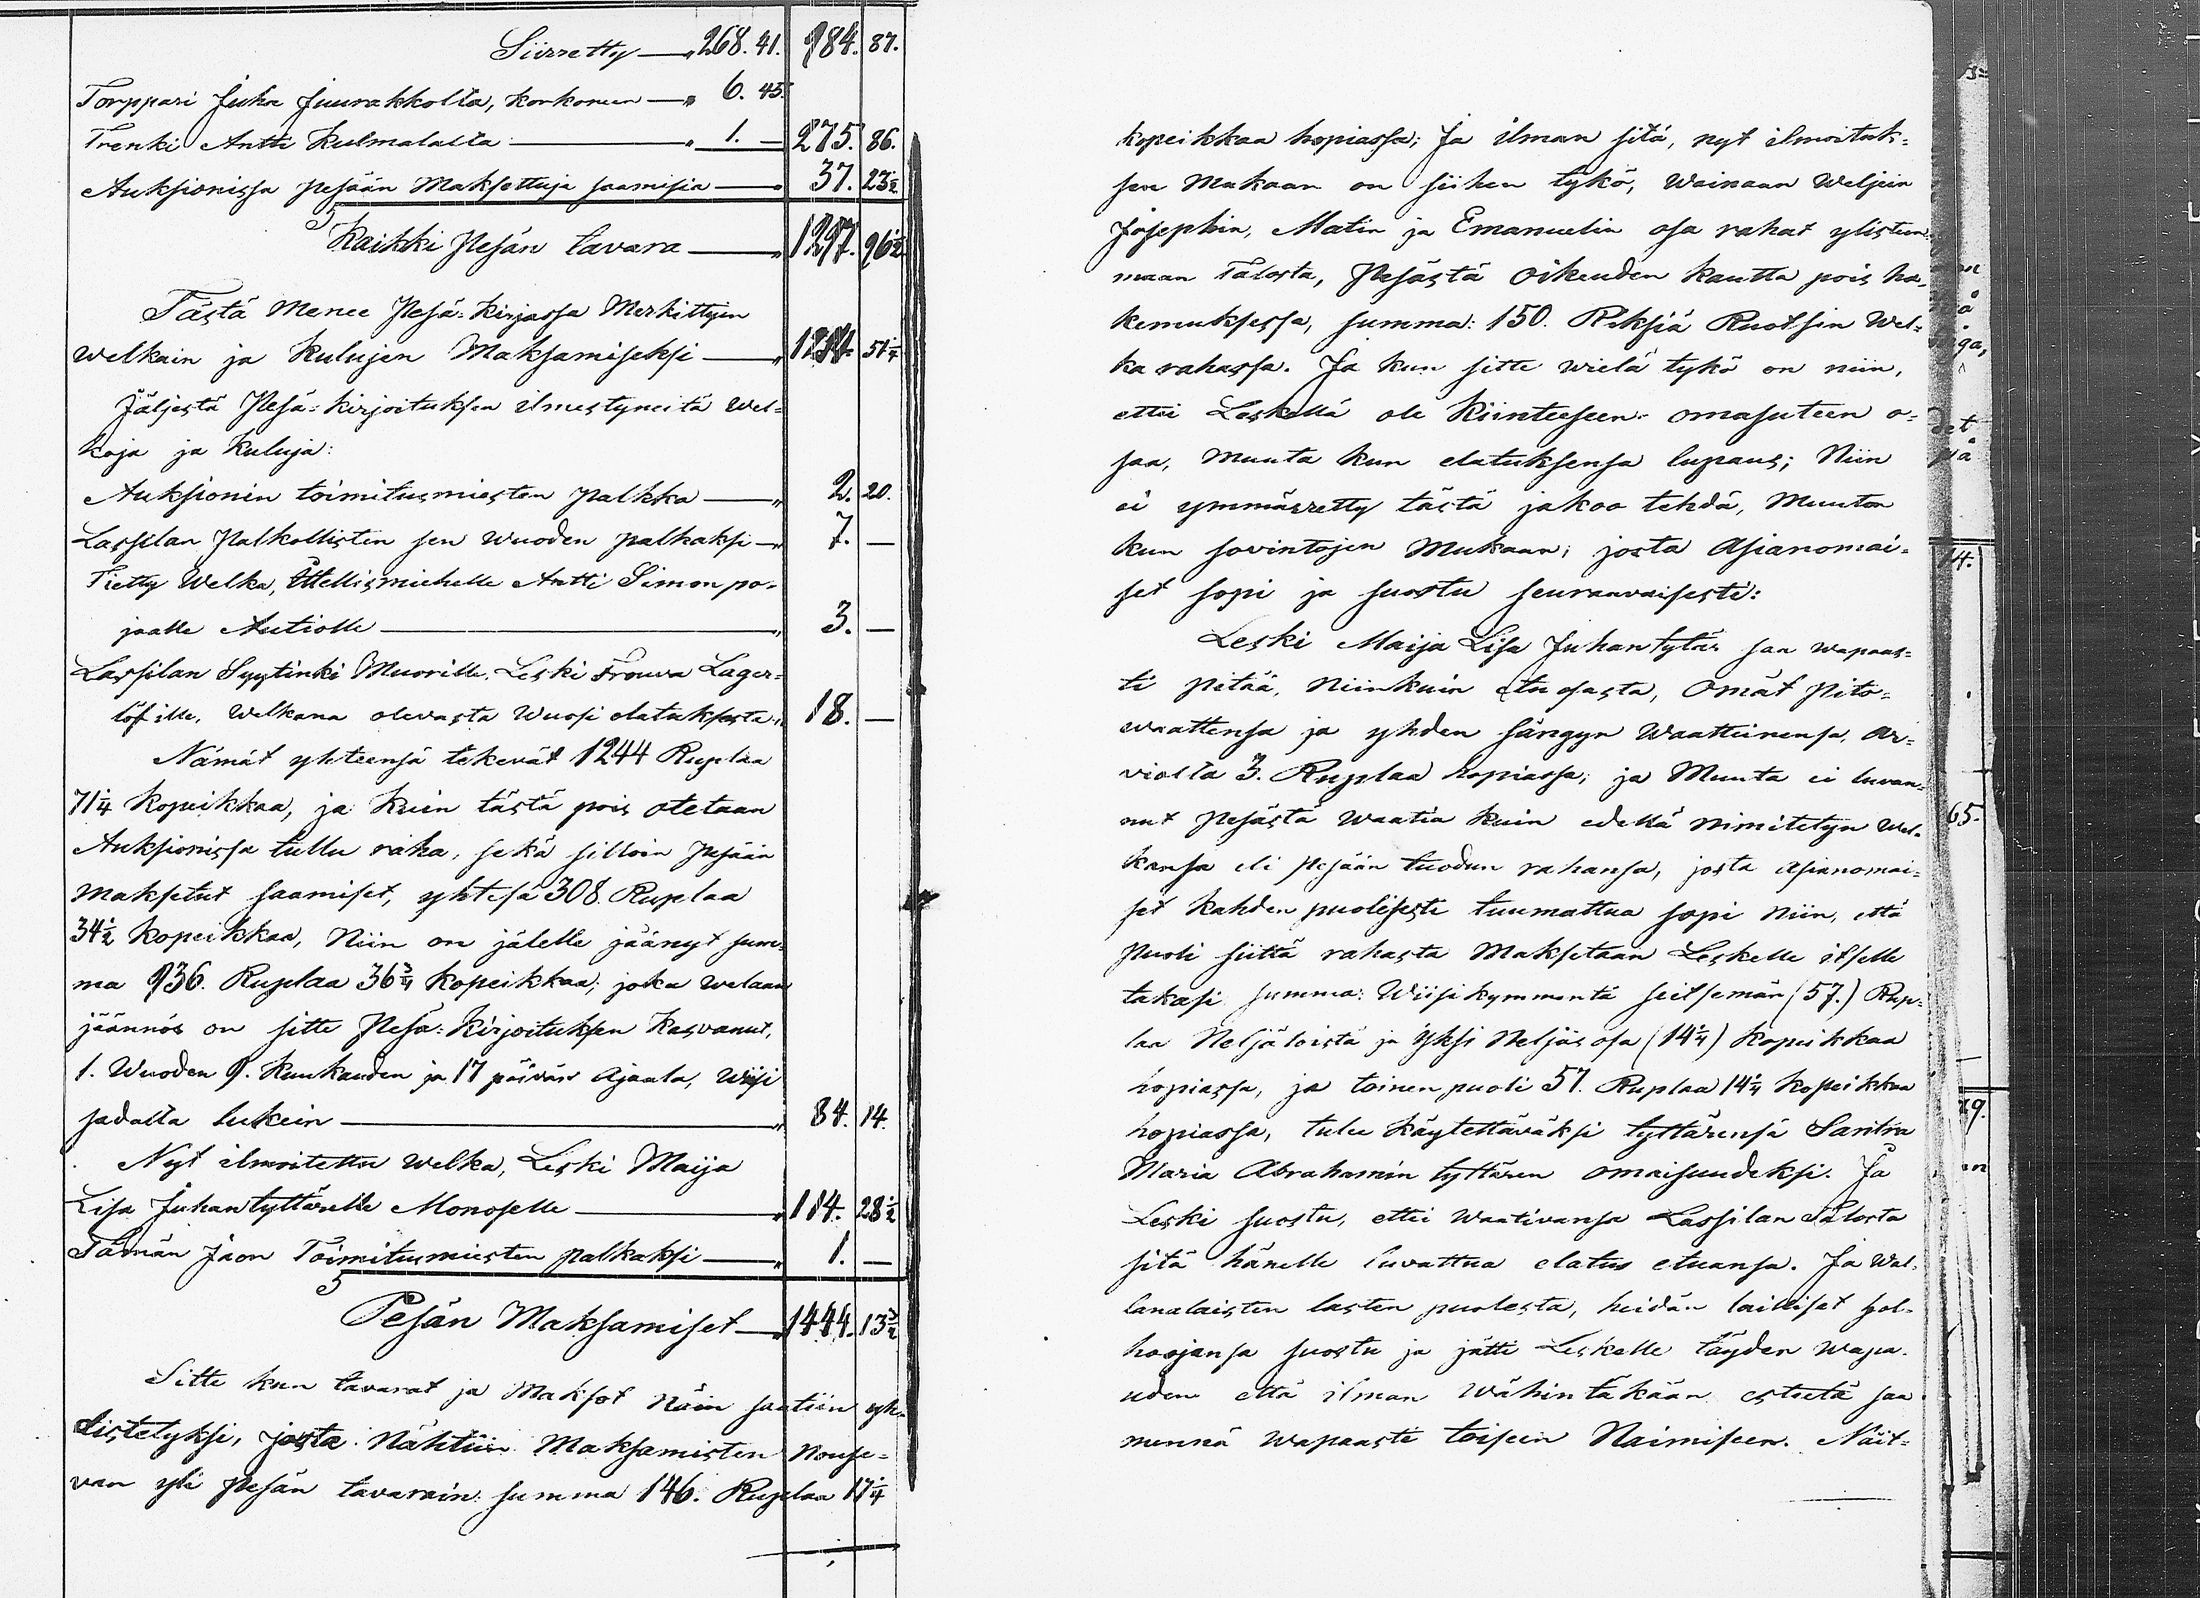 Siirretty — „ 268. 41. 984. 87.
Torppari Juha Juurakkolta, korkoneen — „ 6. 45.
Trenki Antti Kulmalalta — „ 1. — 275. 86.
Auksionissa pesään Maksettuja saamisia — „ 37. 23½
Kaikki Pesän tavara — „ 1297. 96½
Tästä Menee Pesä=Kirjassa Merkittyin
welkain ja Kulujen Maksamiseksi — „ 51¼
Jäljestä Pesä=kirjoituksen ilmestyneitä wel=
koja ja Kuluja:
Auksionin toimitusmiesten palkka — „ 2. 20.
Lassilan Palkollisten sen wuoden palkaksi — „ 7. —
Tietty Welka, Antti Simon po=
jalle Autiolle — „ 3. —
Lassilan Syytinki Muorille, Leski Frouva Lager=
löf ille, Welkana olevasta Wuosi elatuksesta „ 18. —
Nämät yhteensä tekevät 1244 Ruplaa
71¼ Kopeikkaa, ja Kuin tästä pois otetaan
Auksionissa tullu raha, sekä silloin Pesään
Maksetut saamiset, yhtesä 308. Ruplaa
34½ Kopeikkaa, Niin on jälelle jäänyt sum=
ma 936. Ruplaa 36¾ Kopeikkaa; joka welaan
jäännös on sitte Pesä=Kirjoituksen Kasvanut,
1. Wuoden 9. Kuukauden ja 17 päivän Ajaala, Wiisi
sadalta lukein — „ 84. 14.
Nyt ilmoitettu Welka, Leski Maija
Lisa Juhantyttärelle Monoselle — „ 114. 28½
Tämän Jaon Toimitusmiesten palkaksi — „ 1. —
Pesän Maksamiset — „ 1444. 13¾
Sitte kun tavarat ja Maksot Näin saatiin yh=
distetyksi, josta Nähtiin Maksamisten Nouse=
van yli Pesän tavarain summa 146. Ruplaa 17¼
kopeikkaa hopiassa; Ja ilman sitä, nyt ilmoituk=
sen Mukaan on siihen tykö, Wainaan Weljein
Josephin, Matin ja Emanuelin osa rahat ylistun=
maan Talosta, Pesästä oikeuden kautta pois ha=
kemuksessa, summa: 150. Riksiä Ruotsin Wel=
ka rahassa. Ja kun sitte wielä tykö on niin,
ettei Leskellä ole Kiinteeseen omasuteen o=
saa, Muuta kun elatuksensa lupaus; Niin
ei ymmärretty tästä jakoo tehdä, Muuton
kun sovintojen Mukaan; josta Asianomai=
set sopi ja suostu seuraavaisesti:
Leski Maija Lisa Juhantytär saa wapaas=
ti pitää, Niinkuin etuosasta, Omat Pito=
waattensa ja yhden sängyn Waatteinensa, Ar=
violta 3. Ruplaa hopiassa; ja Muuta ei luvan=
nut Pesästä waatia kuin edellä nimitetyn Wel=
kansa eli pesään tuodun rahansa, josta Asianomai=
set Kahden puolisesti tuumattua sopi Niin, että
Puoli siitä rahasta Maksetaan Leskelle itselle
takasi summa: Wiisikymmentä seitsemän (57.) Rup=
laa Neljätoista ja Yksi Neljäs osa (14¼) Kopeikkaa
hopiassa, ja toinen puoli 57. Ruplaa 14¼ kopeikkaa
hopiassa, tulee Käytettäväksi tyttärensä Sanna
Maria Abrahamin tyttären omaisuudeksi. Ja
Leski suostu, ettei Waativansa Lassilan Talosta
sitä hänelle luvattua elatus etuansa. Ja Wal=
lanalaisten lasten puolesta, heidän lailliset hol=
hoojansa suostu ja jätti Leskelle täyden Wapa=
uden että ilman Wähintäkään estettä saa
mennä Wapaasti toiseen Naimiseen. Näit=
14.
65.
29.